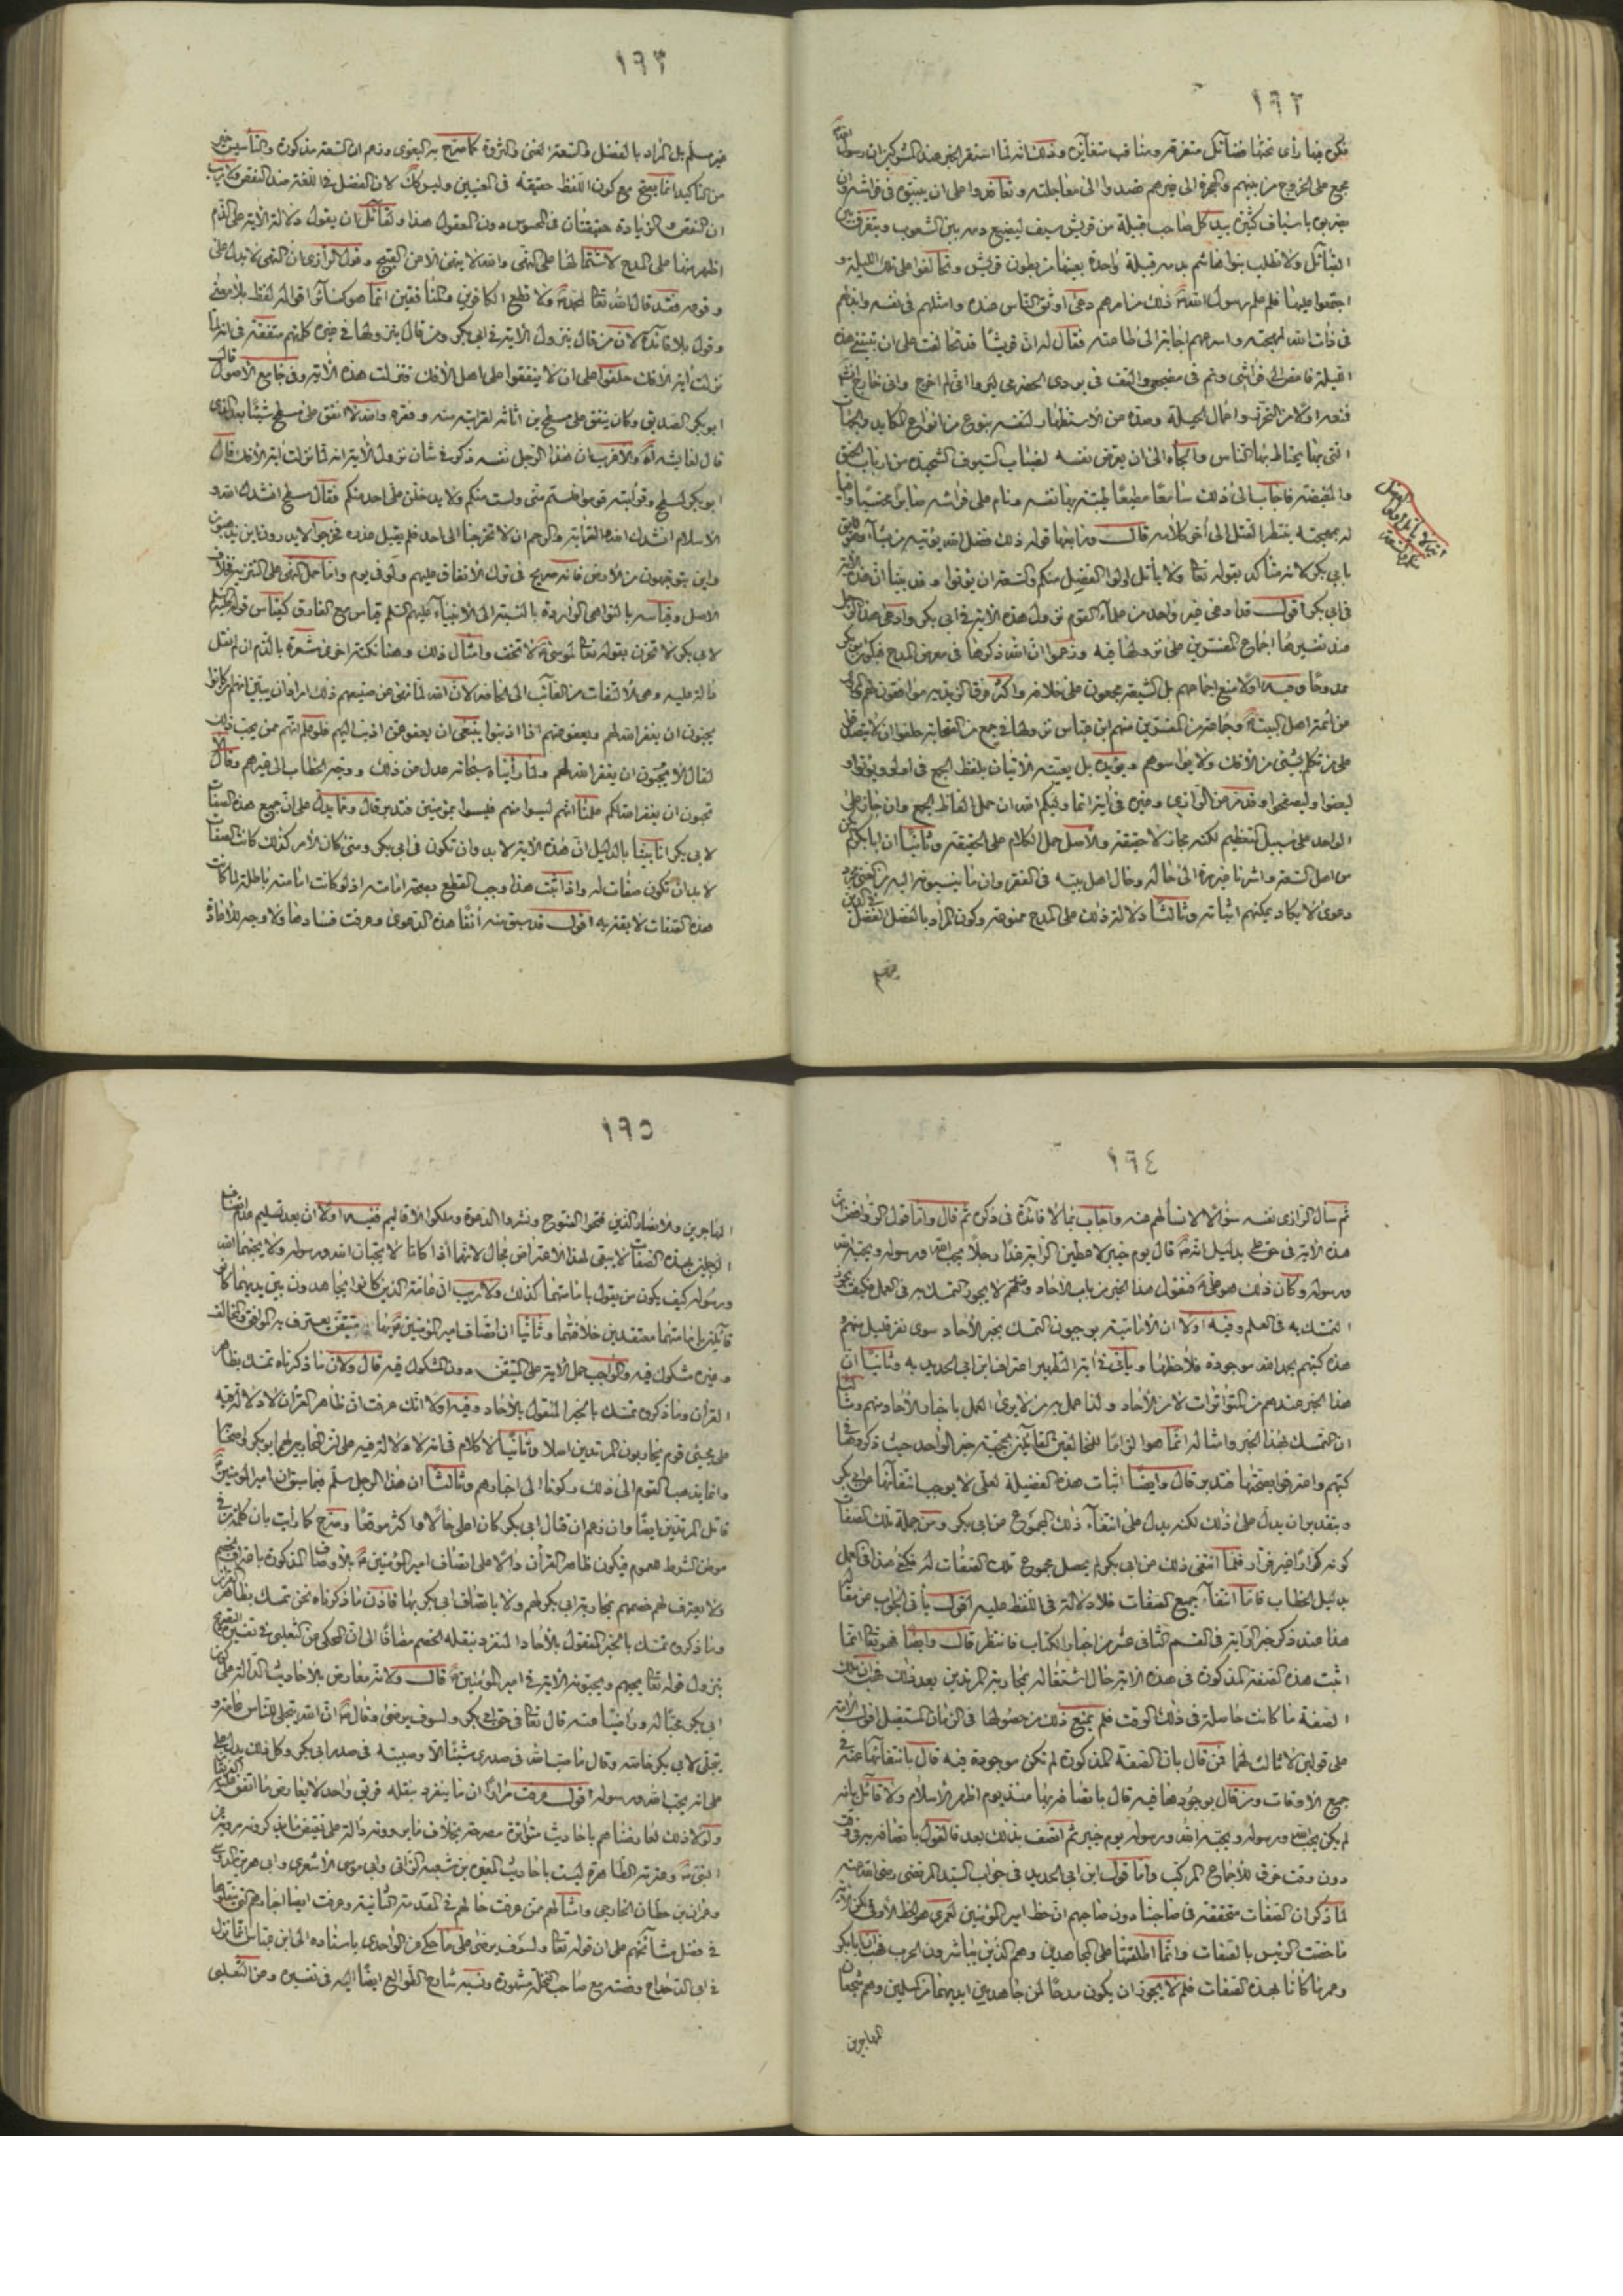 ١٩٢
فكن فيما رأى تحتها فضائل متفرقة ومناقب متغايرة وذلك انه لما استقر الخبر عند المشركين ان رسول الله
مجمع على الخروج من بينهم والهجرة الى غيرهم قصدوا الى معاجلته وتعاقدوا على ان يبيتوه في فراشه وان
يضربوه باسياف كثيرة بيد كل صاحب قبيلة من قريش سيف ليضيع دمه بين الشعوب ويتفرق بين
القبائل ولا تطلب بنو هاشم بدمه قبيلة واحدة بعينها من بطون قريش وتحالفوا على تلك الليلة و
اجتمعوا عليها فلما علم رسول الله ذلك من امرهم دعى اوثق الناس عنده وامثلهم في نفسه وابذلهم
في ذات الله لمهجته واسرعهم اجابة الى طاعته فقال له ان قريشا قد تحالفت على ان تبيتني هذه
الليلة فامض الى فراشي ونم في مضجعي والتف في بردي الحضرمي ليروا اني لم اخرج واني خارج
فمنعه اولا من التحرز واعمال الحيلة وصده عن الاستظهار لنفسه بنوع من انواع المكايد والجهات
التي يحتاط بها الناس والجأه الى ان يعرض نفسه لظبات السيوف الشحيذة من ارباب الحنق
والغيظة فاجاب الى ذلك سامعا مطيعا طيبة بها نفسه ونام على فراشه صابرا محتسبا واقيا
له بمهجته ينتظر القتل الى آخر كلامه قال ورابعها قوله ذلك فضل الله يؤتيه من يشاء وهو لايق
بابي بكر لانه متأكد بقوله تعا ولا يأتل اولوا الفضل منكم والسعة ان يؤتوا وقد بينا ان هذه الآية
في ابي بكر اقول قد ادعى غير واحد من علماء القوم نزول هذه الاية في ابي بكر وادعى هذا الرجل
عند تفسيرها اجماع المفسرين على نزولها فيه وزعموا ان الله ذكرها في معرض المدح فيكون ابو بكر
ممدوحا وفيه اولا منع اجماعهم بل الشيعة مجمعون على خلافه واكثر فرق الزيدية موافقون لهم
من أئمة اهل البيت وجماعة من المفسرين منهم ابن عباس نزولها في جمع من الصحابة حلفوا ان لا يتصدقوا
على من تكلم بشئ من الافك ولا يواسوهم ويؤيده بل يعينه الاتيان بلفظ الجمع في اولوا ويؤتوا و
ليعفوا وليصفحوا وقد مر عن الرازي وغيره في آية انما وليكم الله ان حمل الفاظ الجمع وان جاز على
الواحد على سبيل التعظيم لكنه مجاز لا حقيقة والاصل حمل الكلام على الحقيقة وثانيا ان ابا بكر لم يكن
من اهل السعة واشرنا غير مرة الى حاله وحال اهل بيته في الفقر وان ما ينسبونه اليه من الغنى مجرد
دعوى لا يكاد يمكنهم اثباته وثالثا دلالة ذلك على المدح ممنوعة وكون المراد بالفضل الفضل في الدين
١٩٣
غير مسلم بل المراد بالفضل والسعة الغنى والثروة كما صرح به البغوي وزعم ان السعة مذكورة والتأسيس خير
من التأكيد انما يصح مع كون اللفظ حقيقة في المعنيين وليس كك لان الفضل في اللغة ضد النقص ولا ريب
ان النقص والزيادة حقيقتان في المحسوس دون المعقول هذا ولقائل ان يقول دلالة الآية على الذم
اظهر منها على المدح لاشتمالها على النهي والله لا ينهى الا عن القبيح وقول الرازي ان النهي لا يدل على
وقوعه فقد قال الله تعا لمحمد ولا تطع الكافرين والمنافقين انما هو كسائر اقواله لفظ بلا معنى
وقول بلا فائدة لان من قال بنزول الاية في ابي بكر ومن قال بنزولها في غيره كلهم متفقة في انه لما
نزلت آية الافك حلفوا على ان لا ينفقوا على اهل الافك فنزلت هذه الآية وفي جامع الاصول قال
ابو بكر الصديق وكان ينفق على مسطح بن اثاثة لقرابته منه وفقره والله لا انفق على مسطح شيئا بعد الذي
قال لعايشة اه والاقرب ان هذا الرجل نفسه ذكر في شان نزول الاية انه لما نزلت آية الافك قال
ابو بكر لمسطح وقرابته قوموا فلستم مني ولست منكم ولا يدخلن علي احد منكم فقال مسطح انشدك الله و
الاسلام انشدك الله والقرابة والرحم ان لا تحوجنا الى احد فلم يقبل عذره فخرجوا لا يدرون اين يذهبون
واين يتوجهون من الارض فانه صريح في ترك الانفاق عليهم ولو في يوم واما حمل النهي على التنزيه فخلاف
الاصل وقياسه بالنواهي الواردة بالنسبة الى الانبياء عليهم السلم قياس مع الفارق كقياس قوله
لابي بكر لا تحزن بقوله تعا لموسى لا تخف وامثال ذلك وهنا نكتة اخرى مشعرة بالذم ان لم نقل
دالة عليه وهي الالتفات من الغائب الى المخاطب لان الله لما نهى عن صنيعهم ذلك اراد ان يبين انهم كانوا
يحبون ان يغفر الله لهم ويعفو عنهم اذا اذنبوا ينبغي ان يعفو عن اذنب اليهم فلو علم انهم ممن يحب ذلك
لقال الا يحبون ان يغفر الله لهم ولما رأيناه سبحانه عدل عن ذلك ووجه الخطاب الى غيرهم وقال الا
تحبون ان يغفر الله لكم علمنا انهم ليسوا منهم فليسوا بمؤمنين فتدبر قال ومما يدل على ان جميع هذه الصفات
لابي بكر انا بينا بالدليل ان هذه الآية لا بد وان تكون في ابي بكر ومتى كان الامر كذلك كانت الصفات
لا بد ان تكون صفات له واذا ثبت هذا وجب القطع بصحة امامته اذ لو كانت امامته باطلة لما كانت
هذه الصفات لايقة به اقول قد سبق منه آنفا هذه الدعوى وعرفت فسادها ولا وجه للاعادة
١٩٤
ثم سأل الرازي نفسه سؤالا لا نسألهم عنه واجاب بما لا فائدة في ذكره ثم قال واما قول الروافض ان
هذه الآية في حق علي بدليل انه قال يوم خيبر لاعطين الراية غدا رجلا يحب الله ورسوله ويحبه الله
ورسوله وكان ذلك هو علي فنقول هذا الخبر من باب الاحاد وعندهم لا يجوز التمسك به في العمل فكيف يجوز
التمسك به في العلم وفيه اولا ان الامامية يوجبون التمسك بخبر الآحاد سوى نفر قليل منهم
هذه كتبهم بحمد الله موجودة فلاحظها ويأتي في آية التطهير اعتراف ابن ابي الحديد به وثانيا ان
هذا الخبر عندهم من المتواترات لا من الآحاد ولذا عمل به من لا يرى العمل باخبار الآحاد منهم وثالثا
ان التمسك بهذا الخبر وامثاله انما هو الزاما للمخالفين القائلين بحجية خبر الواحد حيث ذكروها في
كتبهم واعترفوا بصحتها فتدبر قال وايضا اثبات هذه الفضيلة لعلي لا يوجب انتفائها عن ابي بكر
وبتقدير ان يدل على ذلك لكنه يدل على انتفاء ذلك المجموع عن ابي بكر ومن جملة تلك الصفات
كونه كرارا غير فرار فلما انتفى ذلك عن ابي بكر لم يحصل مجموع تلك الصفات له فكفى هذا في العمل
بدليل الخطاب فاما انتفاء جميع الصفات فلا دلالة في اللفظ عليه اقول يأتي الجواب عن مقاله
هذا عند ذكر خبر الراية في القسم الثاني عشر من اخبار الكتاب فانتظر قال وايضا فهو تعا انما
اثبت هذه الصفة المذكورة في هذه الاية حال اشتغاله بمحاربة المرتدين بعد ذلك فهب ان تلك
الصفة ما كانت حاصلة في ذلك الوقت فلم يمنع ذلك من حصولها في الزمان المستقبل اقول الامة
على قولين لا ثالث لهما فمن قال بان الصفة المذكورة لم تكن موجودة فيه قال بانتفائها عنه في
جميع الاوقات ومن قال بوجودها فيه قال باتصافه بها منذ يوم اظهر الاسلام ولا قائل بانه
لم يكن يحب الله ورسوله ويحبه الله ورسوله يوم خيبر ثم اتصف بذلك بعد فالقول باتصافه به في وقت
دون وقت خرق للاجماع المركب واما قول ابن ابي الحديد في جواب السيد المرتضى رضي الله عنه
لما ذكر ان الصفات متحققة في صاحبنا دون صاحبهم ان حظ امير المؤمنين لعمري هو الحظ الاوفى لكن الآية
ما خصت الرئيس بالصفات وانما اطلقتها على المجاهدين وهم الذين يباشرون الحرب فهب ان ابا بكر
وعمر ما كانا بهذه الصفات فلم لا يجوز ان يكون مدحا لمن جاهد بين ايديهما من المسلمين وهم شجعان
المهاجرين
١٩٥
المهاجرين والانصار الذين فتحوا الفتوح ونشروا الدعوة وملكوا الاقاليم ففيه اولا ان بعد تسليم عدم اتصاف
الرجلين بهذه الصفات لا يبقى لهذا الاعتراض مجال لانهما اذا كانا لا يحبان الله ورسوله ولا يحبهما الله
ورسوله كيف يكون من يقول بامامتهما كذلك ولا ريب ان عامة الذين كانوا يجاهدون بين يديهما كانوا
قائلين بامامتهما معتقدين خلافتهما وثانيا ان اتصاف امير المؤمنين بها متيقن يعترف به الموافق والمخالف
وغيره مشكوك فيه والواجب حمل الآية على المتيقن دون المشكوك فيه قال ولان ما ذكرناه تمسك بظاهر
القرآن وما ذكروه تمسك بالخبر المنقول بالآحاد وفيه اولا انك عرفت ان ظاهر القرآن لا دلالة فيه
على مجئ قوم يحاربون المرتدين اصلا وثانيا لا كلام في انه لا دلالة فيه على ان المحارب لهم ابو بكر
وانما يذهب القوم الى ذلك ركونا الى اخبارهم وثالثا ان هذا الرجل سلم فيما سبق ان امير المؤمنين
قاتل المرتدين ايضا وان زعم ان قتال ابي بكر كان اعلى حالا واكثر موقعا وصرح كما رأيت بان كلمة من في
موطن الشرط للعموم فيكون ظاهر القرآن دالا على اتصاف امير المؤمنين بالاوصاف المذكورة باعتراف
ولا يعترف لهم خصمهم بمحاربة ابي بكر لهم ولا باتصاف ابي بكر بها فاذن ما ذكرناه نحن تمسك بظاهر القرآن
وما ذكروه تمسك بالخبر المنقول بالآحاد المنفرد بنقله الخصم مضافا الى ان المحكي عن الثعلبي في تفسيره
نزول قوله تعا يحبهم ويحبونه الآية في امير المؤمنين قال ولانه معارض بالاحاديث الدالة على كون
ابي بكر محبا لله وراضيا عنه قال تعا في حق ابي بكر ولسوف يرضى وقال ان الله يتجلى للناس عامة و
يتجلى لابي بكر خاصة وقال ما صب الله في صدري شيئا الا وصببته في صدر ابي بكر وكل ذلك يدل
على انه يحب الله ورسوله اقول عرفت مرارا ان ما ينفرد بنقله فريق واحد لا يعارض ما اتفق عليه
ولولا ذلك لعارضناهم باحاديث متواترة مصرحة بخلاف ما يروونه دالة على نقيض ما يذكرونه مروية عن
النبي وعترته الطاهرة ليست باحاديث المغيرة بن شعبة الزاني وابي موسى الاشعري وابي هريرة الدوسي
وعمران بن حطان الخارجي وامثالهم ممن عرفت حالهم في المقدمة الثانية وعرفت ايضا اخبارهم التي نقلوها
في فضل مشائخهم على ان قوله تعا ولسوف يرضى على ما حكي عن الواحدي باسناده الى ابن عباس انما نزل
في ابي الدحداح وقصته مع صاحب النخلة مشهورة ونسبه شارح الطوالع ايضا اليه في تفسيره وعن الثعلبي